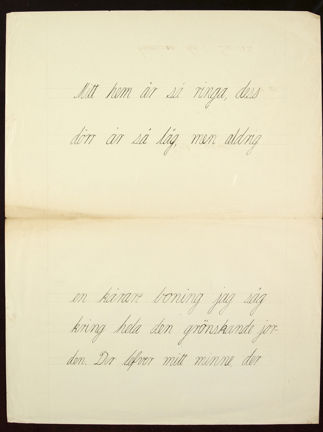 Mitt hem är så ringa, dess
dörr är så låg, men aldrig
en kärare boning jag såg
kring hela den grönskande jor-
den. Der lefver mitt minne der